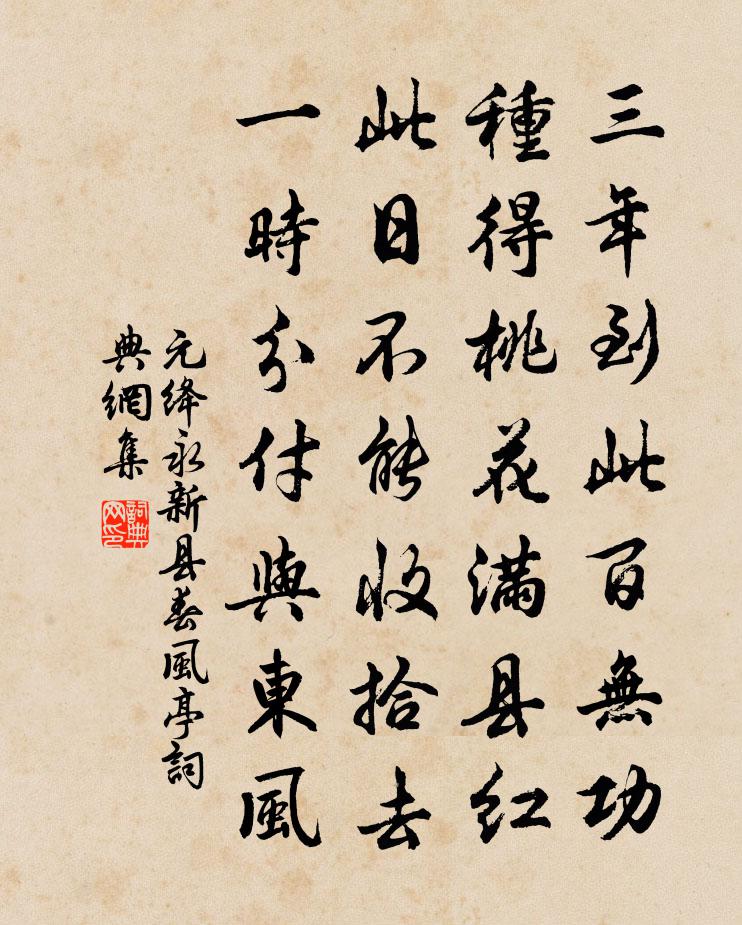 三年到此百無功
種得桃花满县红
此日不能收拾去
一時分付與東風
元绛永新县春風亭詞
典網集
詞典网印